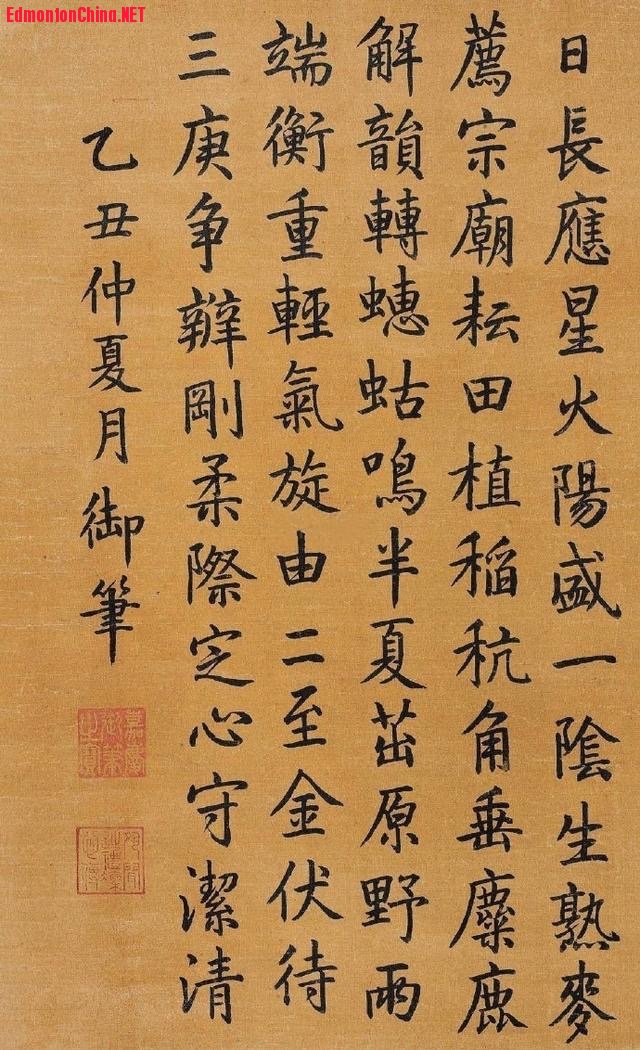 EdmontonChina.NET
日長應星火陽盛一陰生熟麥
薦宗廟耘田植稻秔角垂麋鹿
解韻轉蟪蛄鳴半夏茁原野兩
端衡重輕氣旋由二至金伏待
三庚争辯剛柔際定心守潔清
乙丑仲夏月御筆
嘉慶御筆之寶